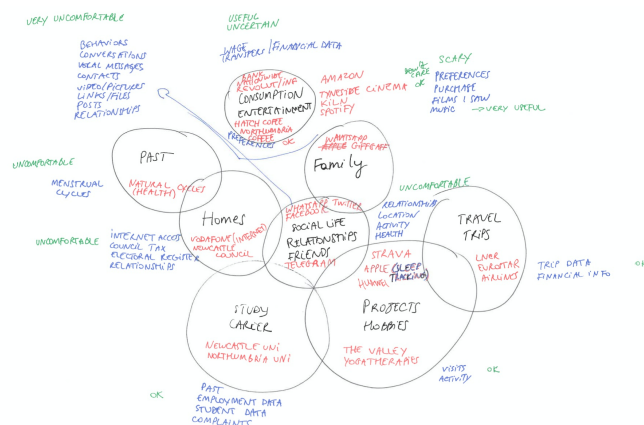 VERY UNCOMFORTABLE
BEHAVIORS
CONVERSATIONS
VOCAL MESSAGES
CONTACTS
VIDEO/PICTURES
LINKS/FILES
POSTS
RELATIONSHIPS
USEFUL
UNCERTAIN
WAGE
TRANSFERS/FINANCIAL DATA
BANK
NATIONWIDE
REVOLUT/
CONSUMPTION
ENTERTAINMENT
HATCH COFEE
NORTHUMBRIA
COFFEE
OK
PREFERENCES
AMAZON
TYNESIDE CINEMA
KILN
SPOTIFY
DON'T
CARE
OR
SCARY
PREFERENCES
PURCHASE
FILMS I SAW
MUSIC
VERY USEFUL
PAST
NATURAL CYCLES
(HEALTH)
UNCOMFORTABLE
MENSTRUAL
CYCLES
WHATSAPP
APPLE GIFFGAFF
Family
Homes
VODAFONE (INTERNET)
NEWCASTLE
COUNCIL
UNCOMFORTABLE
INTERNET ACCES
COUNCIL TAX
ELECTORAL REGISTER
RELATIONSHIPS
WHATSAPP TWITTER
FACEBOOK
SOCIAL LIFE
RELATIONSHIPS
FRIENDS
TELEGRAM
UNCOMFORTABLE
RELATIONSHIP
LOCATION
ACTIVITY
HEALTH
TRAVEL
TRIPS
LNER
EUROSTAR
AIRLINES
TRIP DATA
FINANCIAL INFO
STRAVA
APPLE (SLEEP
TRACKING)
HUAWEI
PROJECTS
HOBBIES
THE VALLEY
YOGATHERAPIES
VISITS
ACTIVITY
OK
STUDY
CAREER
NEWCASTLE UNI
NORTHUMBRIA UNI
OK
PAST
EMPLOYMENT DATA
STUDENT DATA
COMPLAINTS